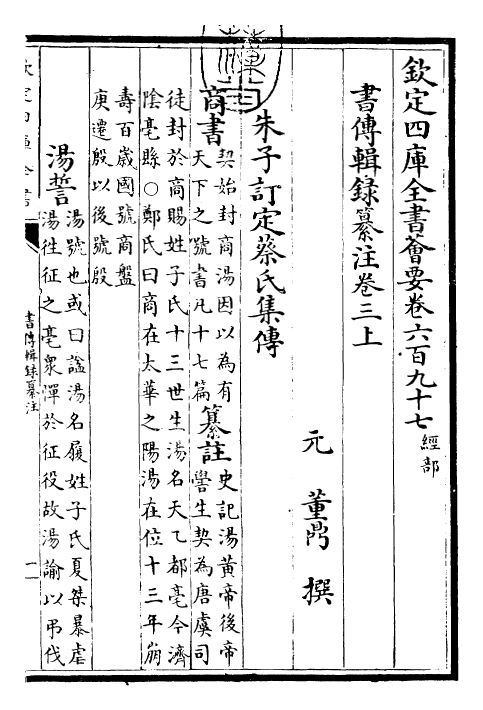 欽定四庫全書薈要卷六百九十七 經部
書傳輯錄纂注卷三上
元 董鼎 撰
朱子訂定蔡氏集傳
商書 契始封商湯因以為有
天下之號書凡十七篇 纂註 史記湯黄帝後帝
嚳生契為唐虞司
徒封於商賜姓子氏十三世生湯名天乙都亳今濟
陰亳縣○鄭氏曰商在太華之陽湯在位十三年崩
壽百歲國號商盤
庚遷殷以後號殷
湯誓 湯號也或曰諡湯名履姓子氏夏桀暴虐
湯往征之亳衆憚於征役故湯諭以弔伐
欽定四庫全書
書傳輯錄纂注
一